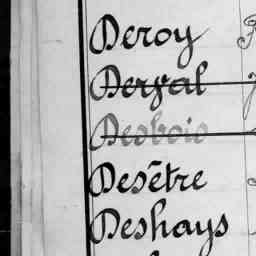 Deroy
Derval
Desbois
Desêtre
Deshays